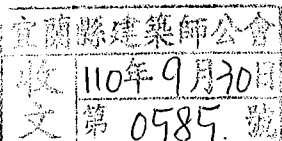 宜蘭縣建築師公會
收文
110年9月30日
第 0585. 號